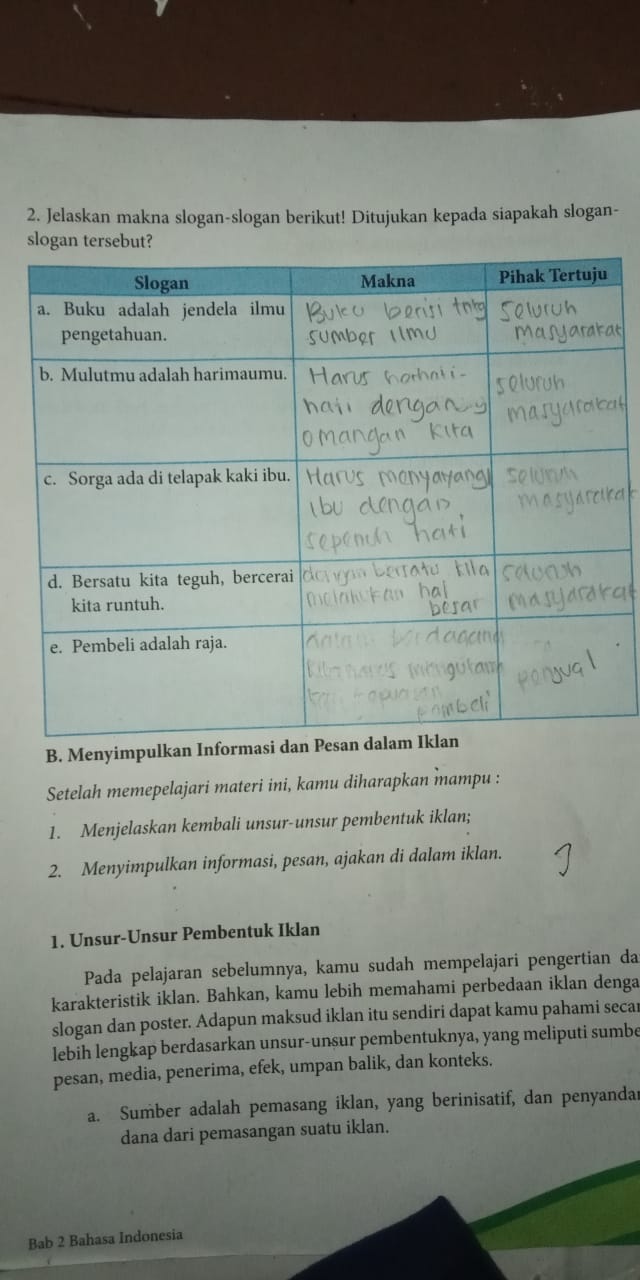 2. Jelaskan makna slogan-slogan berikut! Ditujukan kepada siapakah slogan-
slogan tersebut?
Slogan Makna Pihak Tertuju
a. Buku adalah jendela ilmu
pengetahuan.
Buku berisi tntg
sumber ilmu
Seluruh
masyarakat
b. Mulutmu adalah harimaumu.
Harus
hati dengan
omangan kita
seluruh
masyarakat
c. Sorga ada di telapak kaki ibu.
Harus menyayangi
ibu dengan
sepenuh hati
seluruh
masyarakat
d. Bersatu kita teguh, bercerai
kita runtuh.
dengan bersatu kita
melakukan hal
besar
seluruh
masyarakat
e. Pembeli adalah raja.
dalam berdagang
kita harus mengutam
pembeli
penjual
B. Menyimpulkan Informasi dan Pesan dalam Iklan
Setelah memepelajari materi ini, kamu diharapkan mampu :
1. Menjelaskan kembali unsur-unsur pembentuk iklan;
2. Menyimpulkan informasi, pesan, ajakan di dalam iklan.
1. Unsur-Unsur Pembentuk Iklan
Pada pelajaran sebelumnya, kamu sudah mempelajari pengertian da
karakteristik iklan. Bahkan, kamu lebih memahami perbedaan iklan denga
slogan dan poster. Adapun maksud iklan itu sendiri dapat kamu pahami secar
lebih lengkap berdasarkan unsur-unsur pembentuknya, yang meliputi sumbe
pesan, media, penerima, efek, umpan balik, dan konteks.
a. Sumber adalah pemasang iklan, yang berinisatif, dan penyandan
dana dari pemasangan suatu iklan.
Bab 2 Bahasa Indonesia